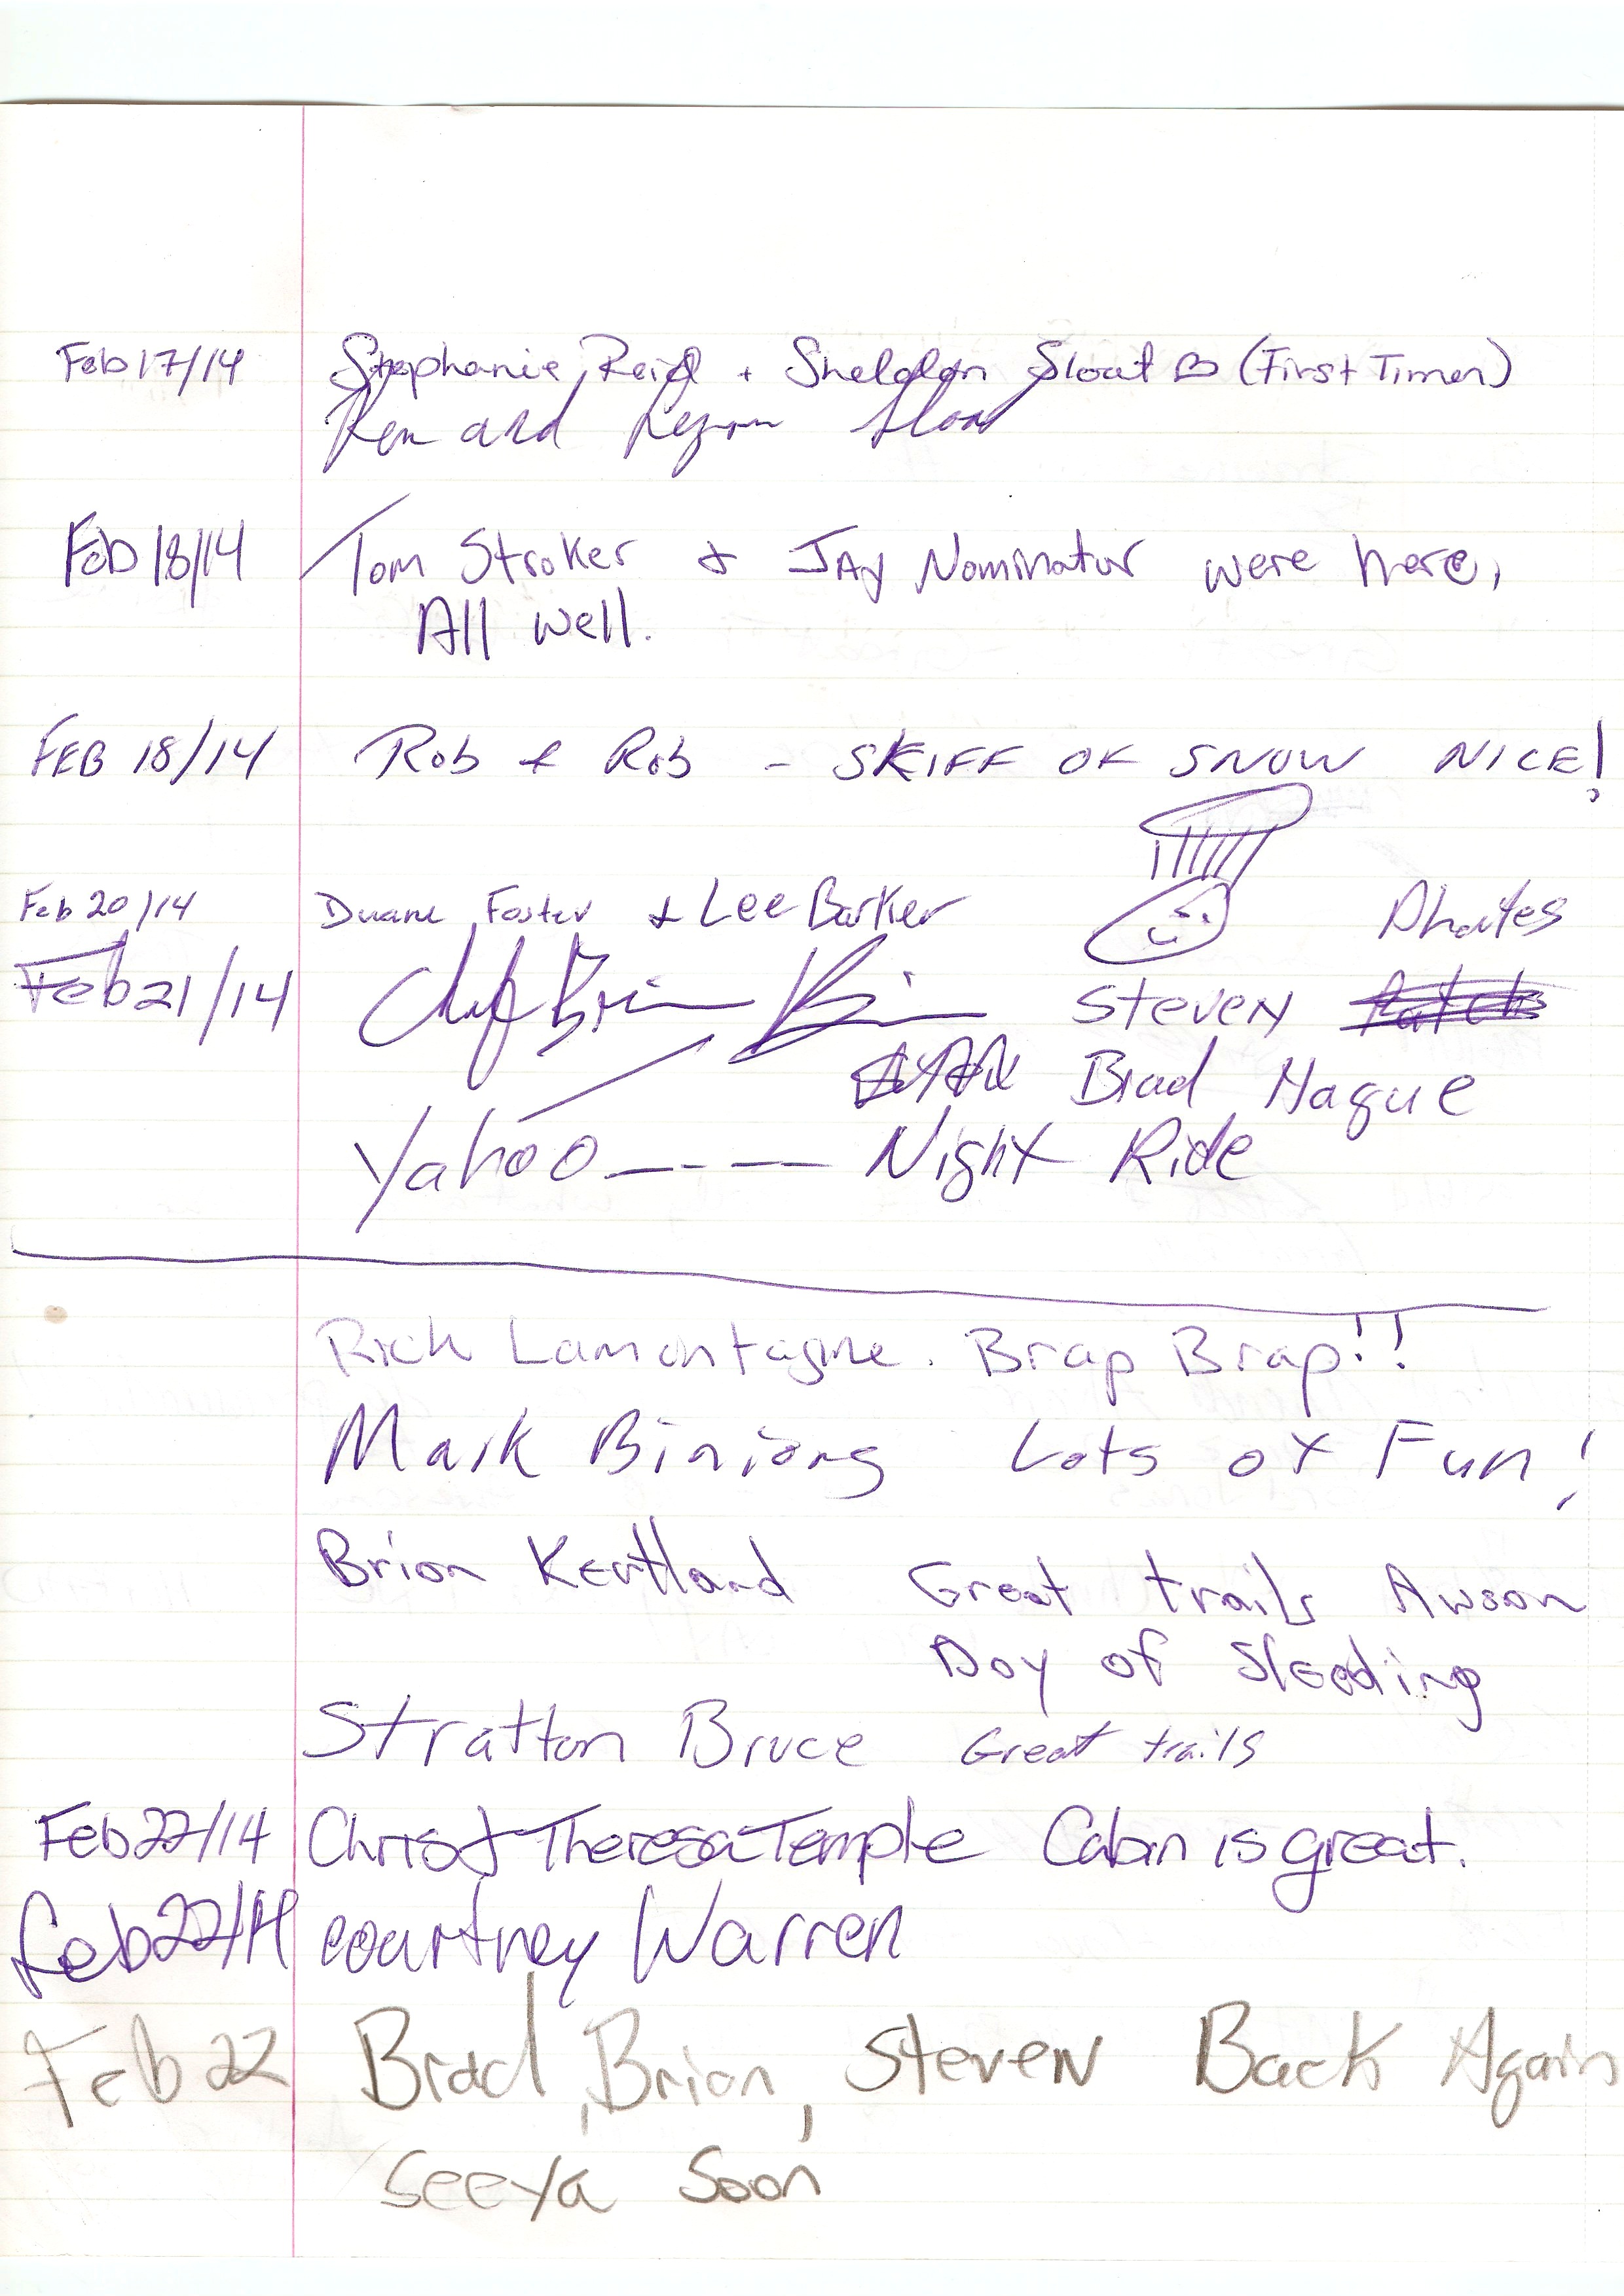 Feb 17/14 Stephanie Reid + Sheldon Sloat (First Timer)
Ken and Sloat
Feb 18/14 Tom Stroker & JAy Nominator were here,
All well.
FEB 18/14 Rob & Rob - SKIFF OF SNOW NICE!
Feb 20/14 Duane Foster & Lee Barker
Rhoades
Feb 21/14 Chef Brian Steven
Brad Hague
Yahoo ---- Night Ride
Rich Lamontagne. Brap Brap!!
Mark Binions Lots of Fun!
Brion Kentland Great trails Awson
Day of Sledding
Stratton Bruce Great trails
Feb 22/14 Chris & Theresa Temple Cabin is great.
Feb 22/14 courtney Warren
Feb 22 Brad, Brion, Steven Back Again
Seeya Soon